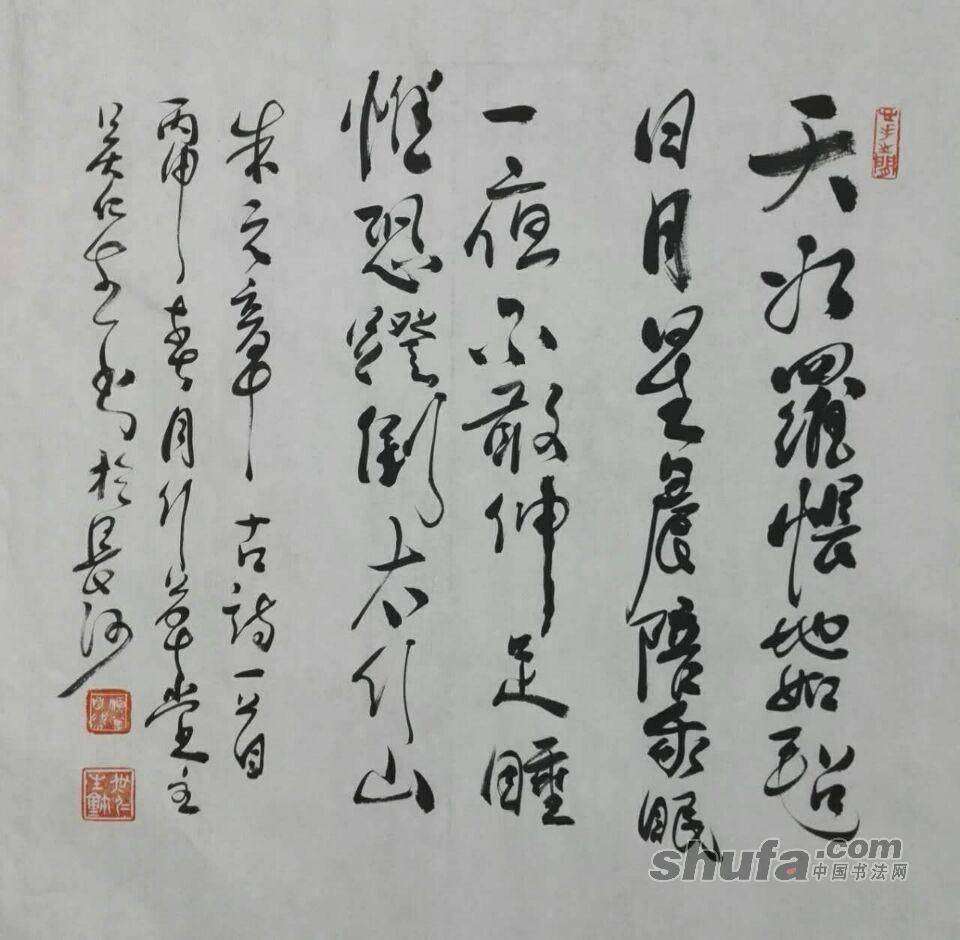 天为羅帳地如毡
日月星晨陪我眠
一夜不敢伸足睡
惟恐蹬倒太行山
朱元章 古詩一首
丙申春月行草堂主
吴仁书於長沙
shufa.com
中国书法网